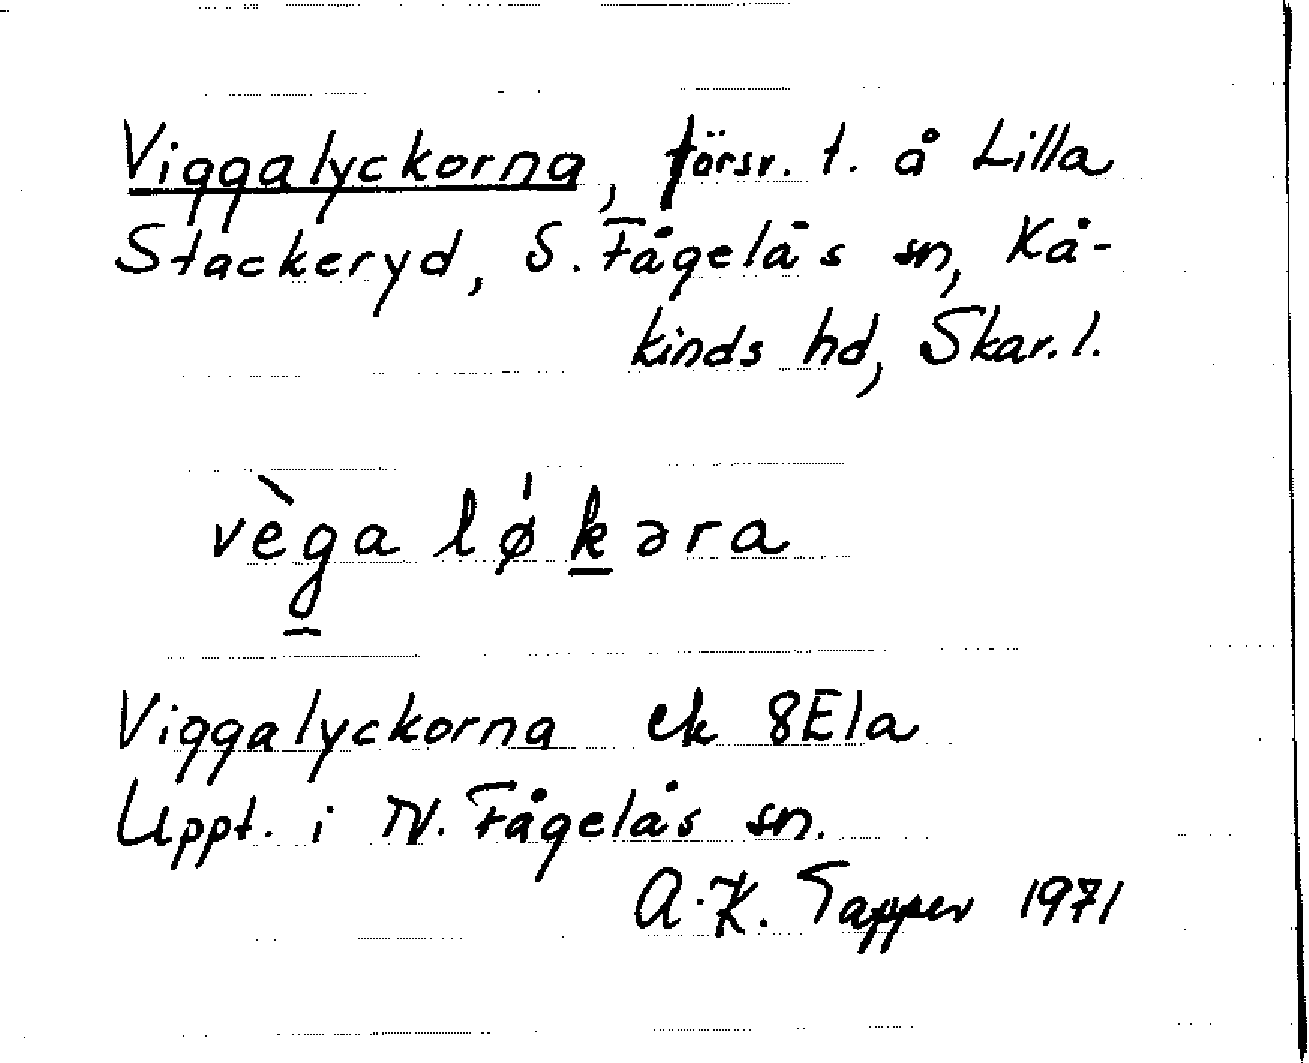 Viggalyckorna, försv. t. å Lilla
Stackeryd, S. Fågelås sn, Kå-
kinds hd, Skar. l.
vèg̲a lø̍k̲əra
Viggalyckorna ek 8E1a
Uppt. i N. Fågelås sn.
A.-K. Tapper 1971